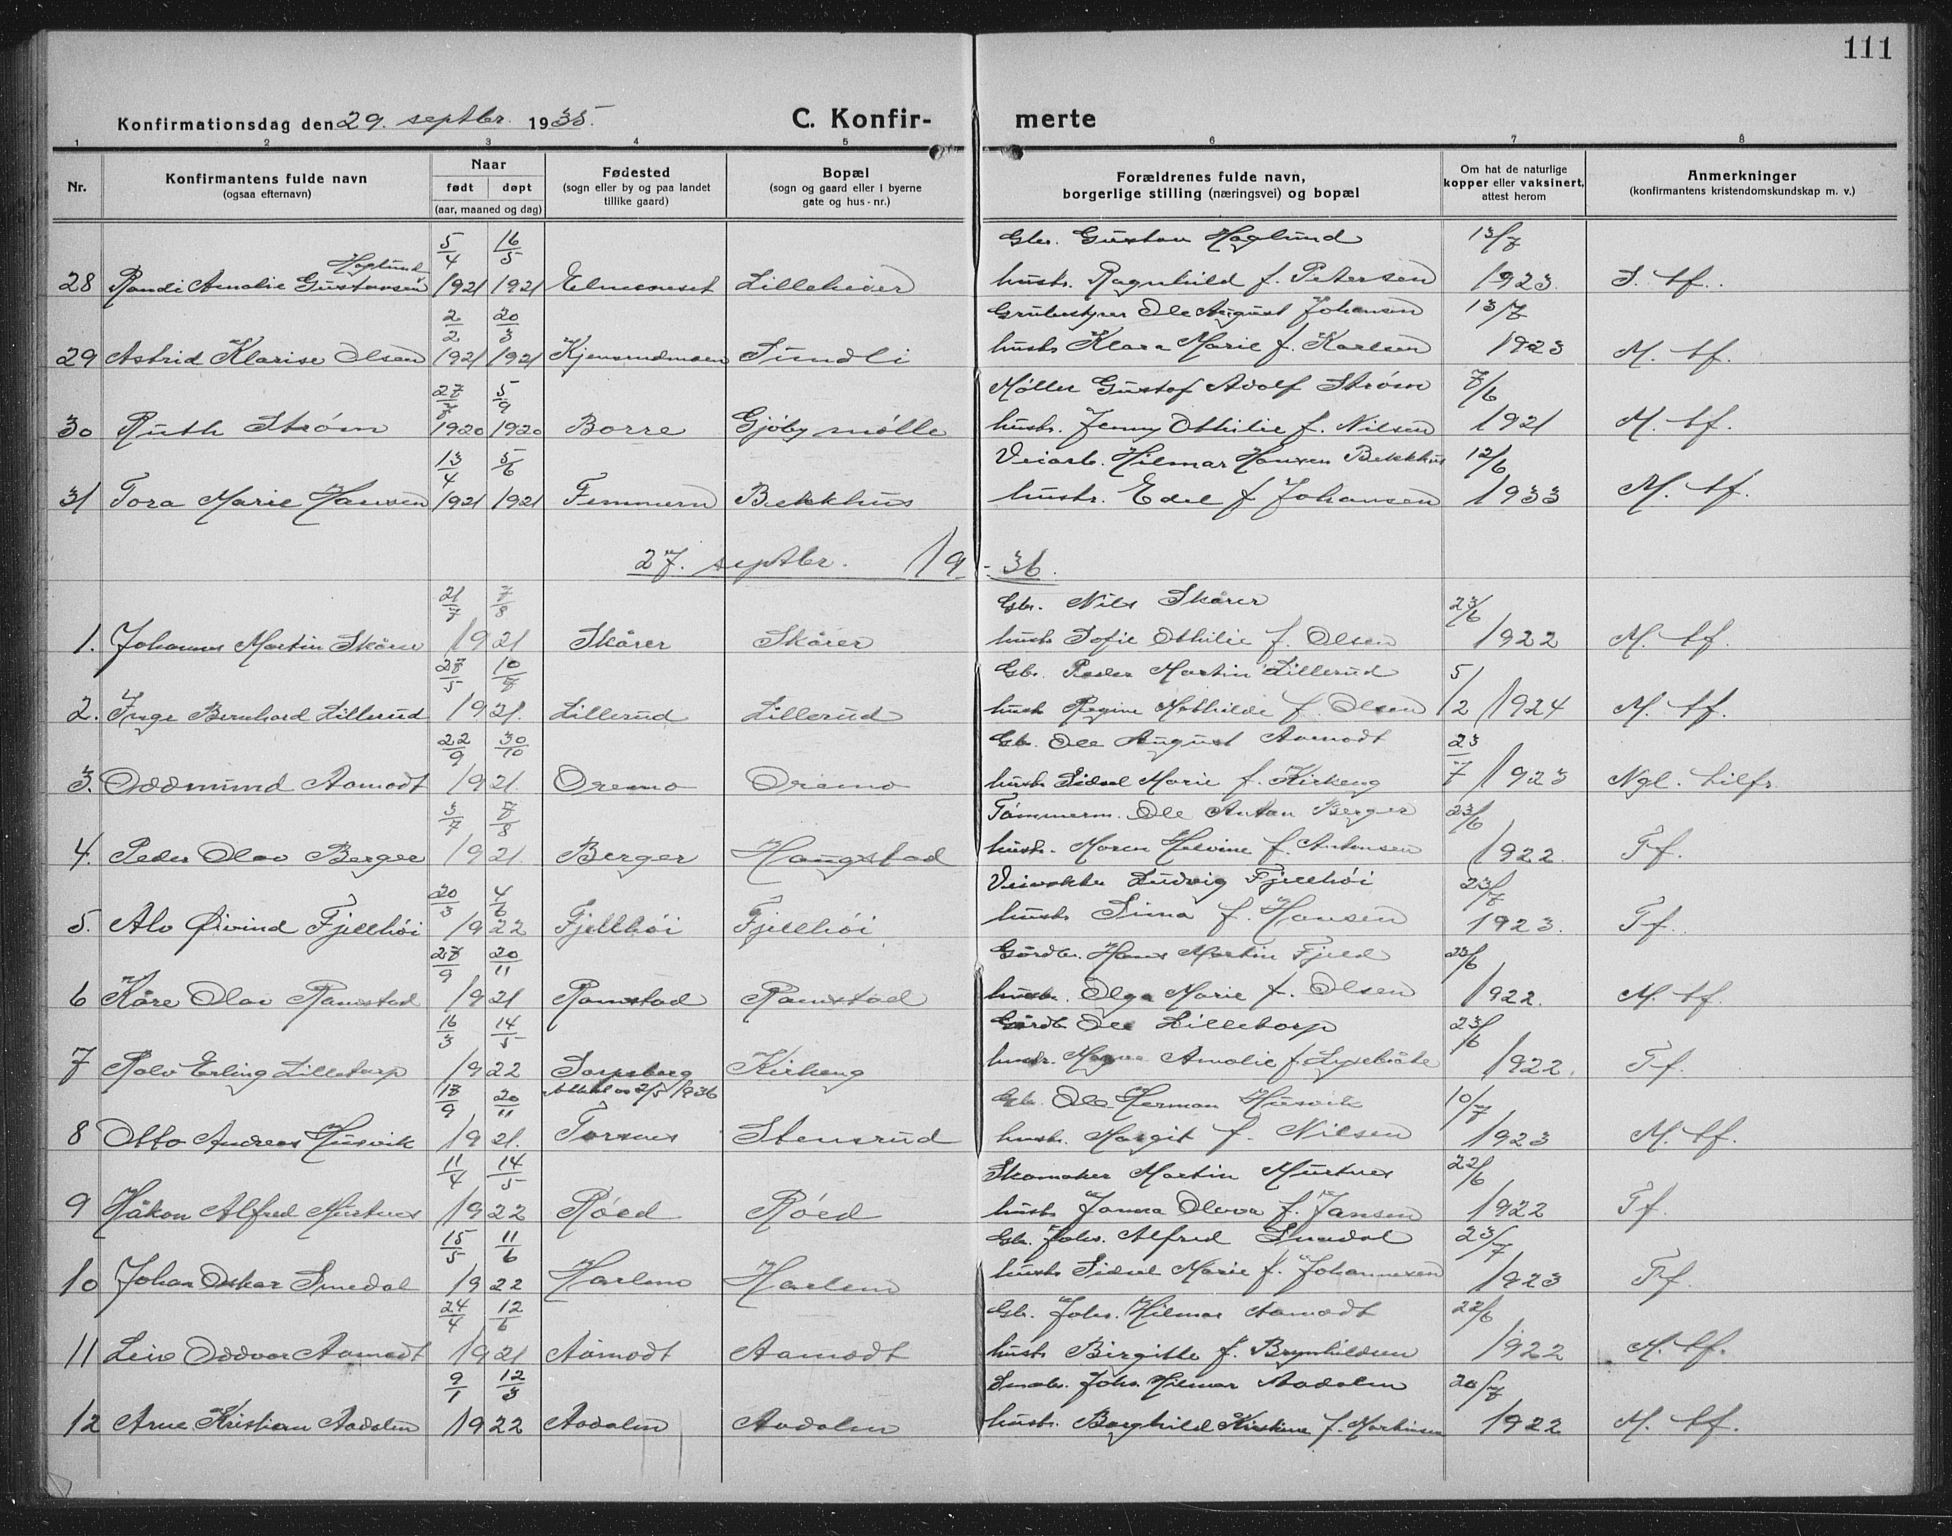 111
Konfirmationsdag den 29. septbr. 1935. C. Konfir- merte
1 2 3 4 5 6 7 8
Nr. Konfirmantens fulde navn (ogsaa efternavn) Naar født døpt (aar, maaned og dag) Fødested (sogn eller by og paa landet tillike gaard) Bopæl (sogn og gaard eller i byerne gate og hus-nr.) Forældrenes fulde navn, borgerlige stilling (næringsvei) og bopæl Om hat de naturlige kopper eller vaksinert, attest herom Anmerkninger (konfirmantens kristendomskundskap m. v.)
5/4 16/5 Gbr. Gustav Høglund 13/7
Høglund
28 Randi Amalie Gustavsen 1921 1921 Lilleheier hustr. Ragnhild f. Petersen 1923 S. tf.
2/2 20/3 Ole August Johansen 13/7
29 Astrid Klarise Olsen 1921 1921 Kjensrudmoen Sundli hustr. Klara Marie f. Karlsen 1923 M. tf.
27/7 5/9 Møller Gustaf Adolf Strøm 7/6
30 Ruth Strøm 1920 1920 Borre Gjølby mølle hustr. Jenny Othilie f. Nilsen 1921 M. tf.
13/4 5/6 Veiarb. Hilmar Hansen Bekkhus 12/6
31 Tora Marie Hansen 1921 1921 Femmern Bekkhus hustr. Edel f. Johansen 1933 M. tf.
27. septbr. 19 - 36.
21/7 7/8 Gbr. Nils Skårer 23/6
1. Johannes Martin Skårer 1921 Skårer Skårer hustr. Sofie Othilie f. Olsen 1922 M. tf.
28/5 10/7 Gbr. Peder Martin Lillerud 5
2. Inge Bernhard Lillerud 1921. Lillerud Lillerud hustr. Regine Mathilde f. Olsen /2 1924 M. tf.
22/9 30/10 Gbr. Ole August Aamodt 23
3. Oddmund Aamodt 1921. Oremo Oremo hustr. Sidsel Marie f. Kirkeng 7 1923 Ngl. tilfr.
3/7 7/8 Tømmerm. Ole Anton Berger 23/6
4. Peder Olav Berger 1921. Berger Haugstad hustr. Maren Helvine f. Antonsen 1922. Tf.
20/3 4/6 Veivokter Ludvig Fjellhøi 23/7
5. Alv Øivind Fjellhøi 1922 Fjellhøi Fjellhøi hustr. Sina f. Hansen 1923. Tf.
27/9 20/11 Gårdbr. Hans Martin Fjeld 23/6
6 Kåre Olav Ramstad 1921 Ramstad Ramstad hustr. Olga Marie f. Olsen 1922. M. tf.
16/3 14/5 Gårdb. Ole Lilletorp 23/6
7 Rolv Erling Lilletorp 1922 Sarpsborg Kirkeng hustr. Magna Amalie f. 1922. Tf.
13/9 20/11 2/5 1936 Gbr. Ole Herman Husvik 10/7
8 Otto Andreas Husvik 1921. Torsnes Stensrud hustr. Margit f. Nilsen 1923 M. tf.
11/4 14/5 Skomaker Martin Murtnes 22/6
9 Håkon Alfred Murtnes 1922 Røed Røed hustr. Janna Olova f. Jansen 1922 Tf.
15/5 11/6 Gbr. Johs. Alfred Smedal 23/7
10 Johan Oskar Smedal 1922 Harlem Harlem hustr. Sidsel Marie f. Johannesen 1923 Tf.
24/4 12/6 Gbr. Johs. Hilmar Aamodt 22/6
11 Leiv Oddvar Aamodt 1921 Aamodt Aamodt hustr. Birgitte f. Brynhildsen 1922 M. tf.
9/1 12/3 Smabr. Johs. Hilmar Aadalen 20/7
12 Arne Kristian Aadalen 1922 Aadalen Aadalen hustr. Borghild Kristine f. Martinsen 1922 M. tf.